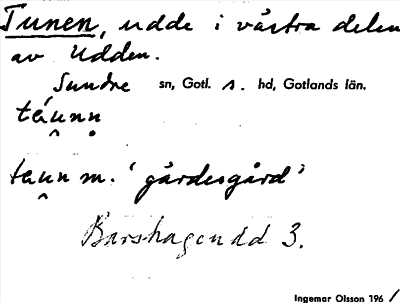 Tunen, udde i västra delen
av Udden.
Sundre sn, Gotl. s. hd, Gotlands län.
táu̯nn̥
tau̯n m. 'gärdesgård'
Barshagendd 3.
Ingemar Olsson 1961